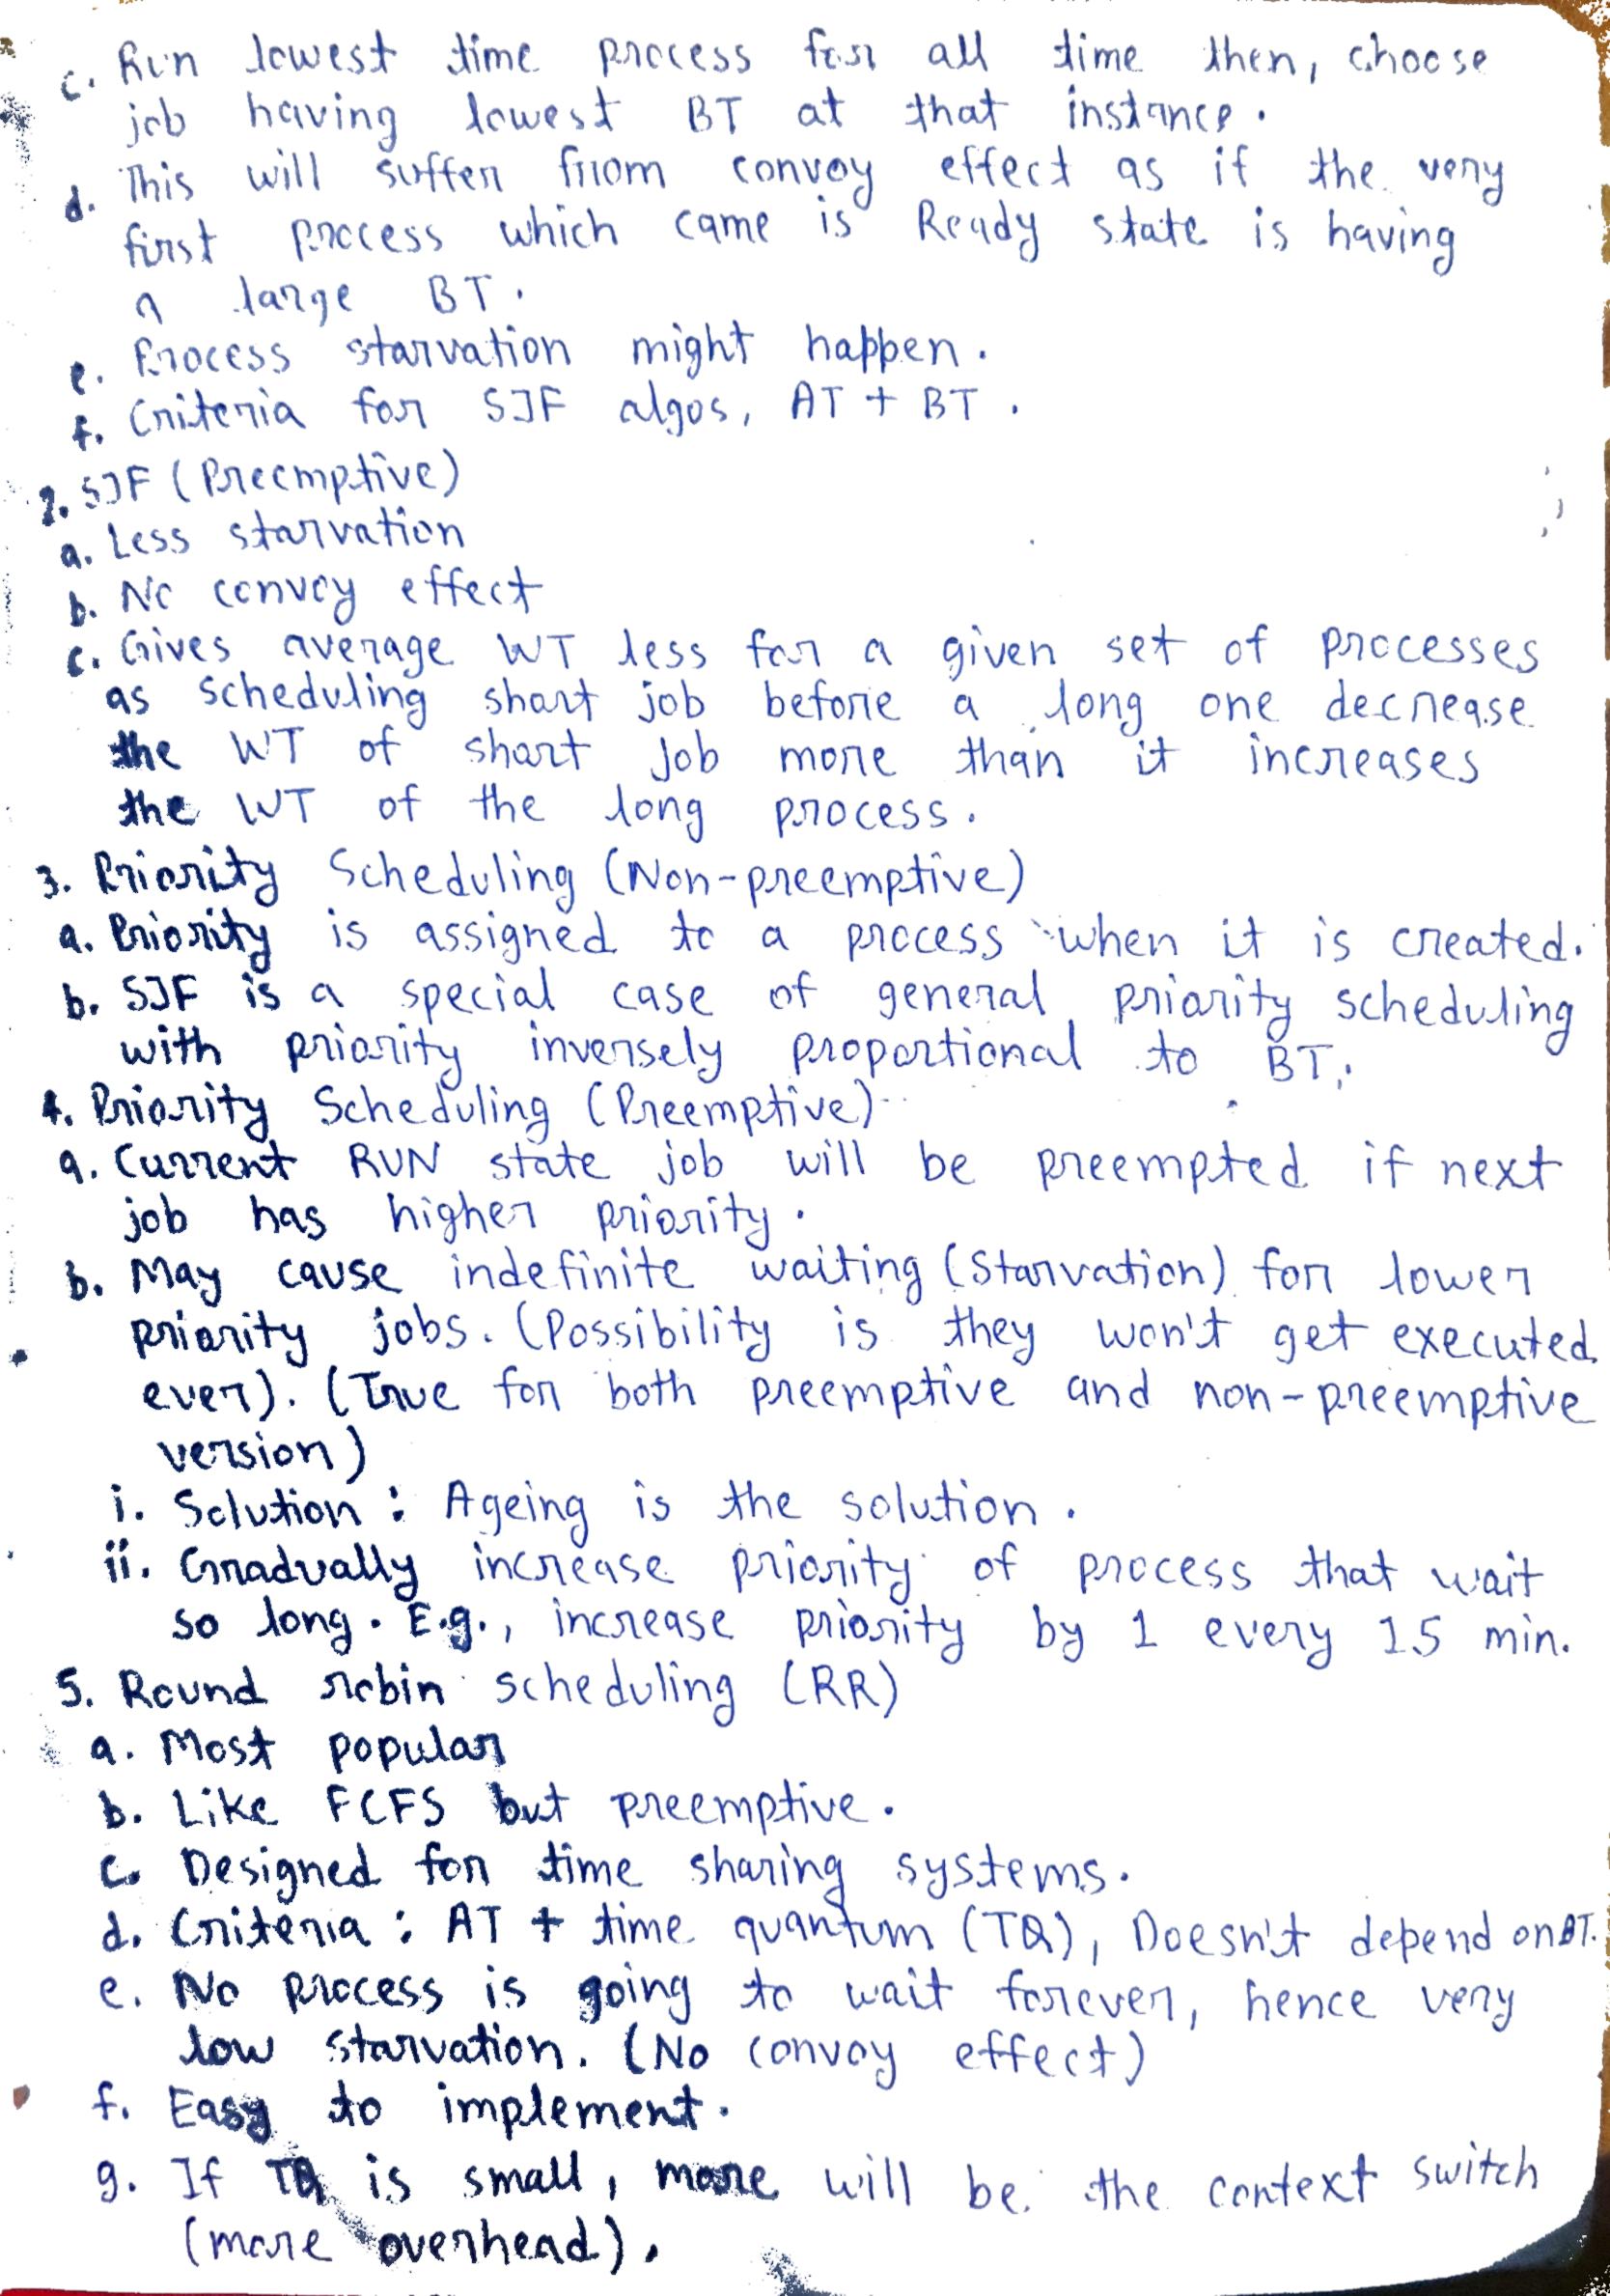 c. Run lowest time process for all time then, choose
job having lowest BT at that instance.
d. This will suffer from convoy effect as if the very
first process which came is Ready state is having
a large BT.
e. Process starvation might happen.
f. Criteria for SJF algos, AT + BT.
2. SJF (Preemptive)
a. Less starvation
b. No convoy effect
c. Gives average WT less for a given set of processes
as scheduling short job before a long one decrease
the WT of short job more than it increases
the WT of the long process.
3. Priority Scheduling (Non-preemptive)
a. Priority is assigned to a process when it is created.
b. SJF is a special case of general priority scheduling
with priority inversely proportional to BT.
4. Priority Scheduling (Preemptive)
a. Current RUN state job will be preempted if next
job has higher priority.
b. May cause indefinite waiting (Starvation) for lower
priority jobs. (Possibility is they won't get executed
ever). (True for both preemptive and non-preemptive
version)
i. Solution : Ageing is the solution.
ii. Gradually increase priority of process that wait
so long. E.g., increase priority by 1 every 15 min.
5. Round robin scheduling (RR)
a. Most popular
b. Like FCFS but preemptive.
c. Designed for time sharing systems.
d. Criteria : AT + time quantum (TQ), Doesn't depend on BT.
e. No process is going to wait forever, hence very
low starvation. (No convoy effect)
f. Easy to implement.
g. If TQ is small, more will be the context switch
(more overhead).